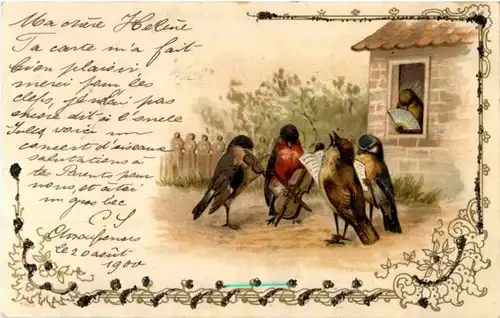 Ma chère Hélène
Ta carte m'a fait
bien plaisir,
merci pour les
clefs, je n'ai pas
encore dit à l'oncle
Jules voici un
concert d'oiseaux
salutations à
tes Parents pour
nous et à toi
un gros bec
C S
le 20 août
1900